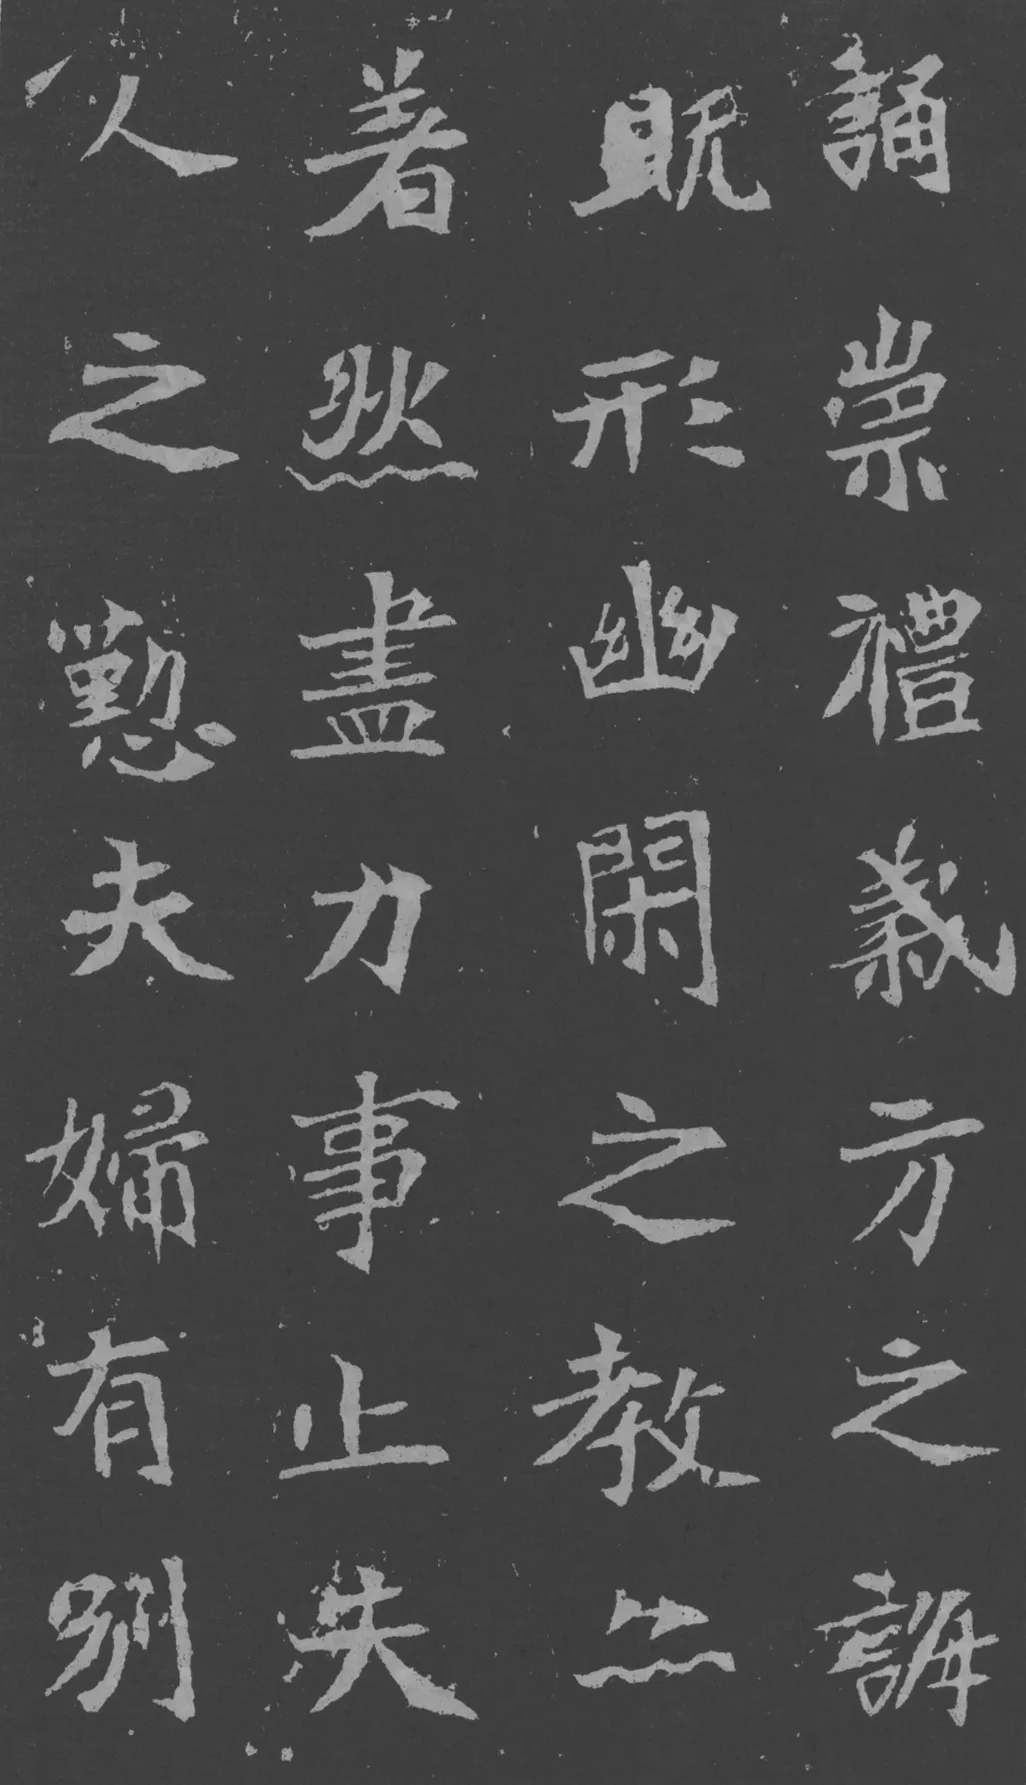 誦崇禮義方之誨
既形幽閑之教亦
著然盡力事止失
人之懃夫婦有別